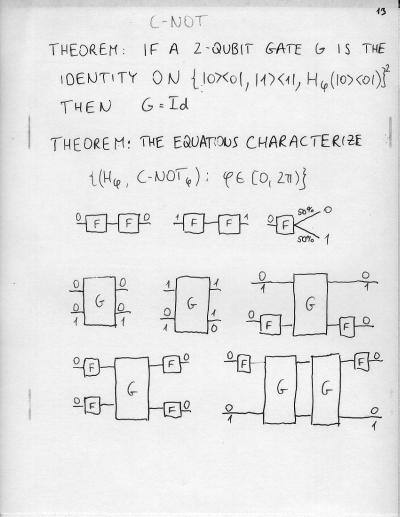 13
C-NOT
THEOREM: IF A 2-QUBIT GATE G IS THE
IDENTITY ON {|0><0|, |1><1|, Hφ(|0><0|)}²
THEN G = Id
THEOREM: THE EQUATIONS CHARACTERIZE
{(Hφ, C-NOTφ): φ∈[0, 2π)}
0 F F 0 1 F F 1 0 F 50% 0 50% 1
0 0 G 0 0 1 1
1 1 G 0 1 1 0
0 1 G 0 1 0 F F 0
0 F G F 0 0 F F 0
0 F G G F 0 0 1 0 1